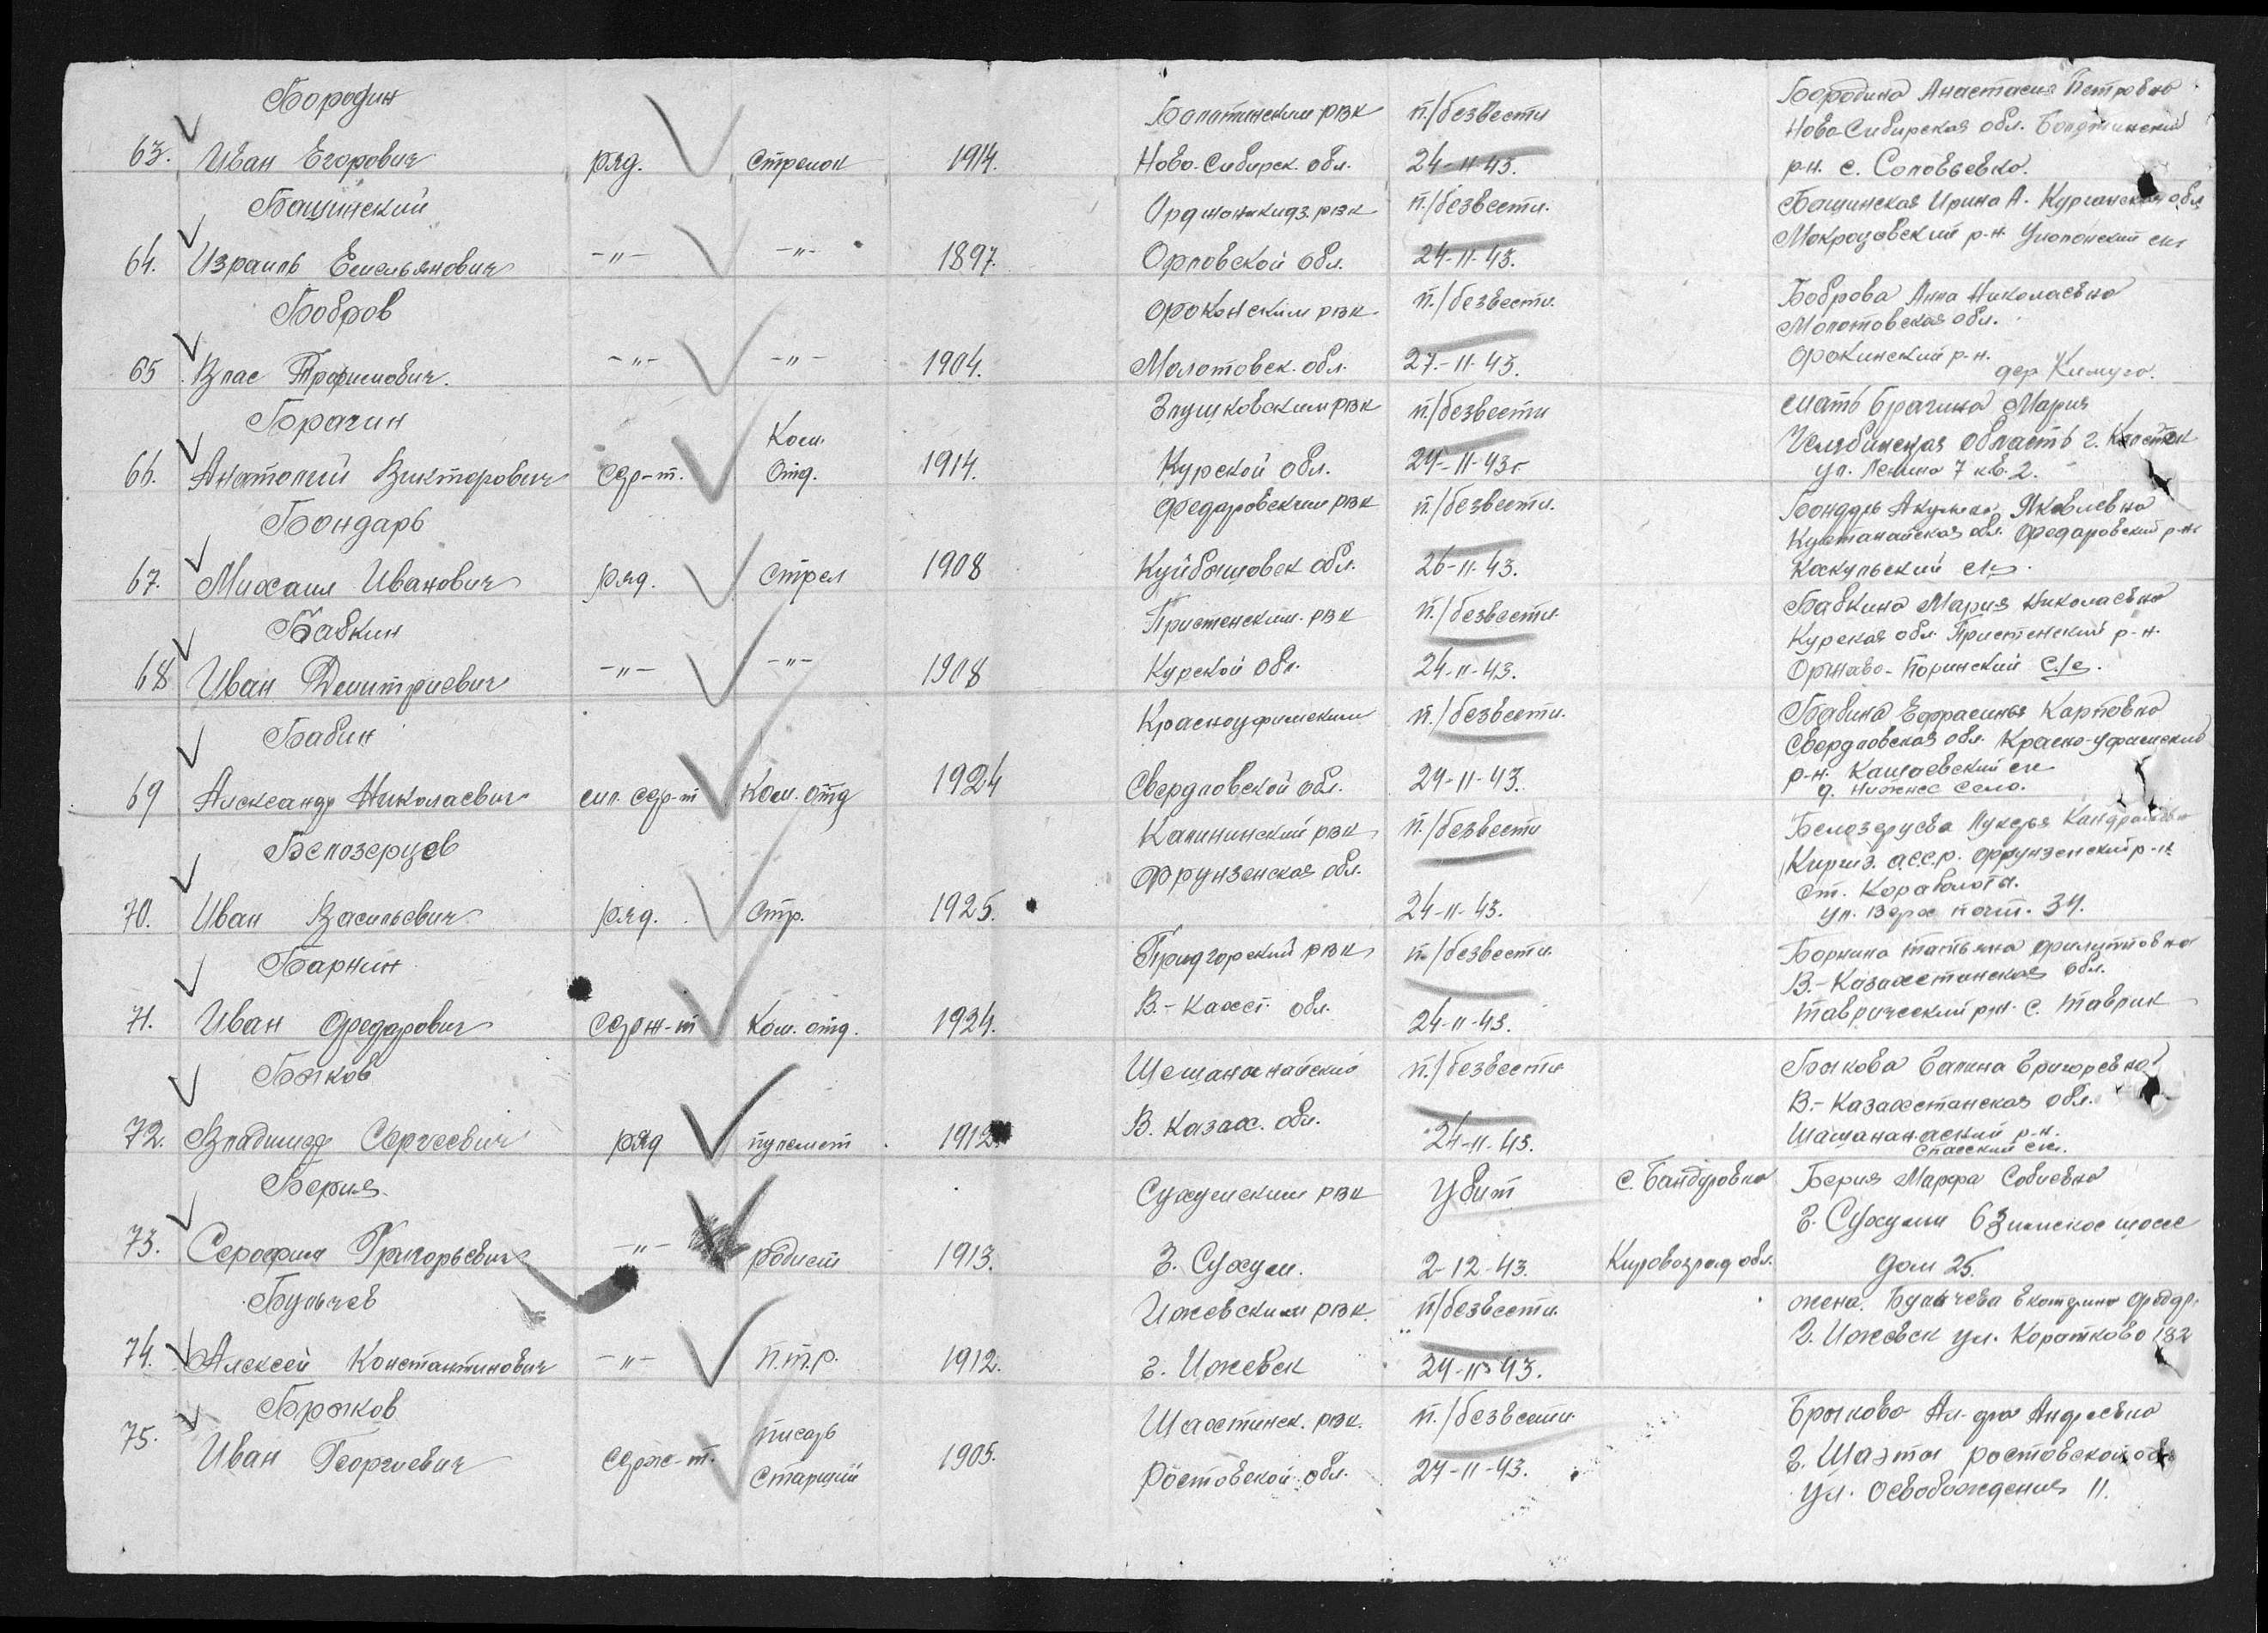 Бородин
63. Иван Егорович ряд. Стрелок 1914. Болотинским рвк Ново-Сибирск. обл. п./безвести 24-11-43. Бородина Анастасия Петровна
Ново-Сибирская обл. Болотинский
р-н. с. Соловьевка.
Бащинский
64. Израиль Емельянович -"- -"- 1897. Орджоникидз. рвк Орловской обл. п./безвести. 24-11-43. Бащинская Ирина А. Курганская обл
Мокроусовский р-н
Бобров
65 Влас Трофимович. -"- -"- 1904. Молотовск. обл. п./безвести. 27-11-43. Боброва Анна Николаевна
Молотовская обл.
р-н. дер
Брагин
66. Анатолий Викторович сер-т. Ком. Отд. 1914. Курской обл. п./безвести 24-11-43г мать Брагина Мария
Челябинская область г.
ул. Ленина 7 кв. 2.
Бондарь
67. Михаил Иванович ряд. Стрел 1908 Федаровским рвк Куйбышовск обл. п./безвести. 26-11-43. Бондарь Яковлевна
Кустанайская обл. Федаровский р-н
Коскульский
Бавкин
68 Иван Дмитриевич -"- -"- 1908 Пристенским. рвк Курской обл. п./безвести. 24-11-43. Бавкина Мария Николаевна
Курская обл. Пристенский р-н.
Ржаво- с/с.
Бабин
69 Александр Николаевич мл. сер-т Ком. отд 1924 Красноуфимским Свердловской обл. п./безвести. 24-11-43. Бабина Ефрасинья Карповна
Свердловская обл. Красно-Уфимский
р-н.
д. Нижнее село.
Белозерцев
70. Иван Васильевич ряд. Стр. 1925. Калининский рвк Фрунзенская обл. п./безвести 24-11-43. Белозерцева Лукерья
Киргиз. а.с.с.р. Фрунзенский р-н
ст.
ул. 34.
Барнин
71. Иван Федарович серж-т Ком. отд. 1924. Предгорский рвк обл. п./безвести. 24-11-43. Татьяна Филипповна
В.-Казахстанская обл.
Таврический р-н. с.
Быков
72. Владимир Сергеевич ряд пулемет 1912. В. Казах. обл. п./безвести 24-11-43. Быкова Галина Григорьевна
В.-Казахстанская обл.
р-н.
Спасский
Берия
73. Серафим Григорьевич -"- радист 1913. Сухумским рвк г. Сухум. Убит 2-12-43. с. Бандуровка Кировоград обл. Берия Марфа
г. Сухуми шоссе
дом 25.
Булычев
74. Алексей Константинович -"- п.т.р. 1912. Ижевским рвк. г. Ижевск п/безвести. 24-11-43. жена. Булычева Екатерина Федор.
г. Ижевск ул. 182
Брыков
75. Иван Георгиевич серж-т. писарь Старший 1905. Шахтинск. рвк. Ростовской обл. п./безвести. 27-11-43. Брыкова Ал-дра Андреевна
г. Шахты ростовской обл
ул. Освобождения 11.